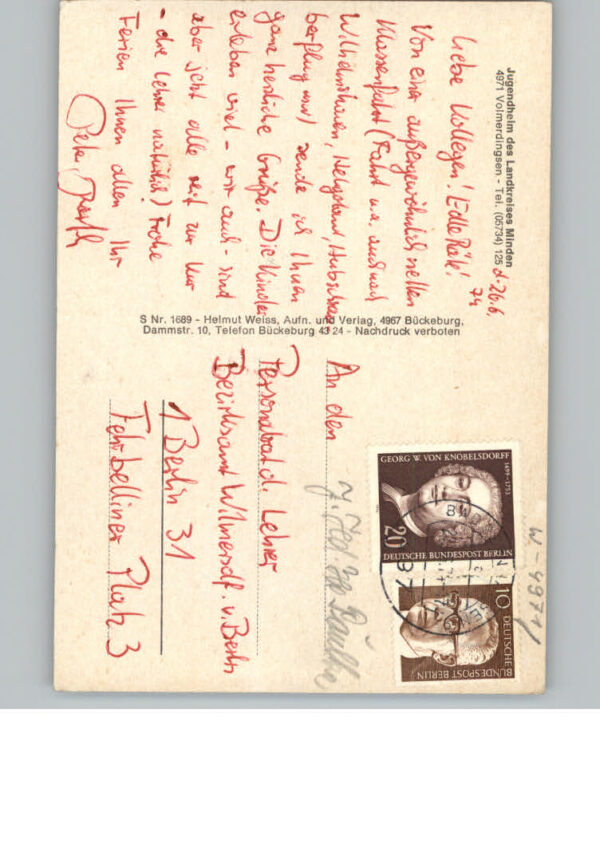 Jugendheim des Landkreises Minden
4971 Volmerdingsen - Tel. (05734) 125
d. 26.6.
74
Liebe Kollegen! Edle Räte!
Von einer außergewöhnlich netten
Klassenfahrt (Fahrt u.a. auch nach
Wilhelmshaven, Helgoland, Hubschrau-
berflug usw.) sende ich Ihnen
ganz herzliche Grüße. Die Kinder
erleben viel - wir auch - sind
aber jetzt alle reif zur Kur
- die Lehrer natürlich! Frohe
Ferien Ihnen allen Ihr
Peter
S Nr. 1689 - Helmut Weiss, Aufn. und Verlag, 4967 Bückeburg,
Dammstr. 10, Telefon Bückeburg 43 24 - Nachdruck verboten
An den
Personalrat d. Lehrer
Bezirksamt Wilmersdf. v. Berlin
1 Berlin 31
Fehrbelliner Platz 3
GEORG W. VON KNOBELSDORFF
1699-1753
20
DEUTSCHE BUNDESPOST BERLIN
10
DEUTSCHE
BUNDESPOST BERLIN
W-4971